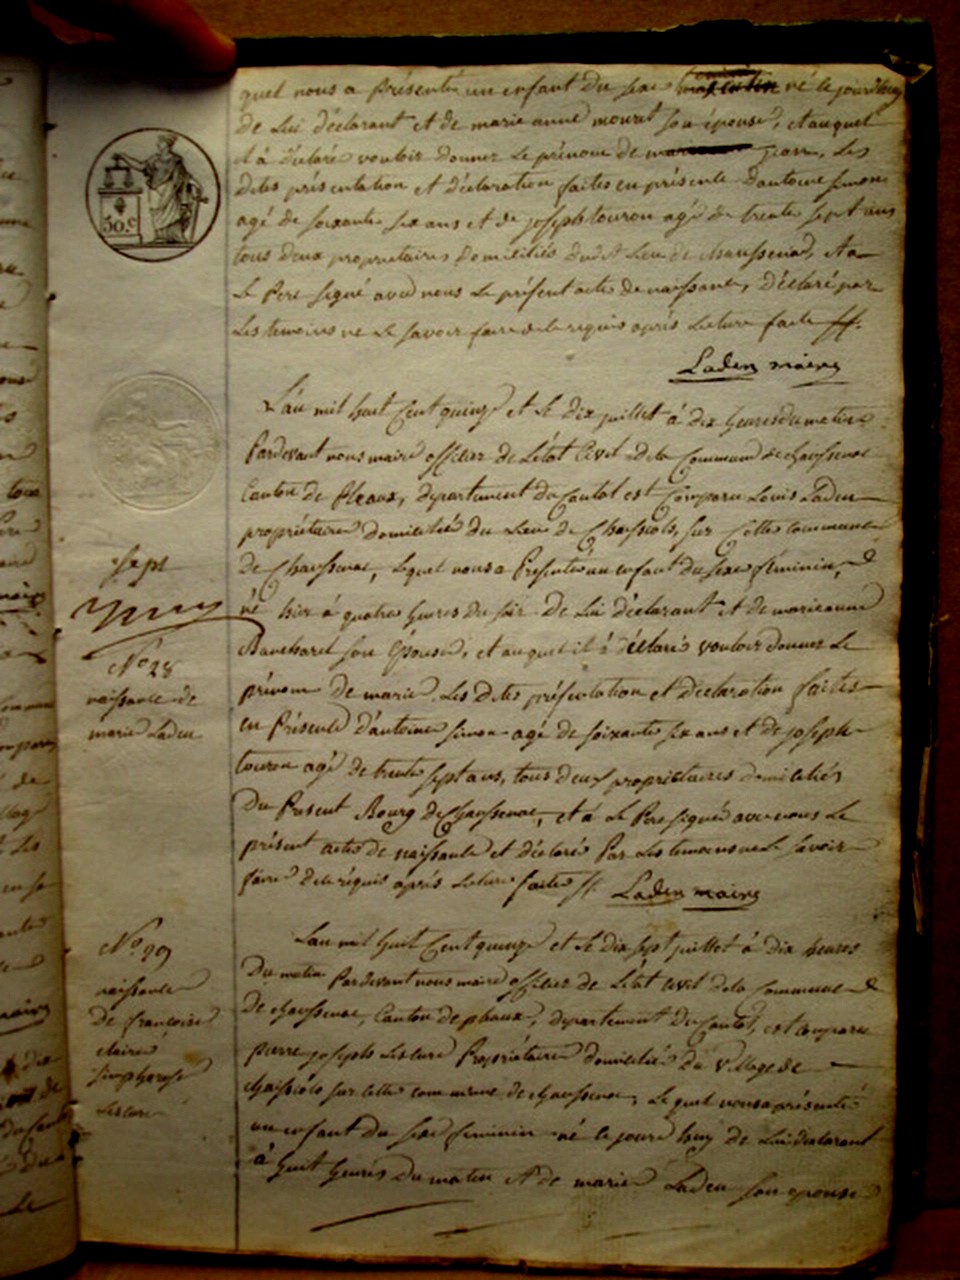 quel nous a présenté un enfant du sexe né le jourd'huy
de Lui déclarant et de marie anne mourat son épouse, et auquel
il à déclaré vouloir donner le prénom de Les
dites présentation et déclaration faites en présente d'antoine simon
agé de soixante six ans et de joseph touron agé de trente sept ans
tous deux propriétaires domiciliés dudit Lieu de chaussenac, et a
Le Pere signé avec nous Le présent acte de naissance, déclaré par
Les temoins ne Le savoir faire de le requis après Lecture faite
Laden maire
L'an mil huit Cent quinze et Le dix juillet à dix heures du matin
Pardevant nous maire officier de L'état Civil de la Commune de chaussenac
Canton de Pleaux, département du Cantal est Comparu Louis Laden
propriétaire domicilié du Lieu de Chaissiols, sur Cette commune
de Chaussenac, Lequel nous a Présenté un enfant du sexe féminin,
né hier à quatre heures du soir de Lui déclarant et de marieanne
Bancharel son Épouse, et auquel il à déclaré vouloir donner Le
prénom de marie, Les Dites présentation et déclaration faites
en Présente d'antoine simon agé de soixante six ans et de joseph
touron agé de trente sept ans, tous deux propriétaires domiciliés
du Present Bourg de Chaussenac, et à Le Pere signé avec nous Le
présent acte de naissance et déclaré Par Les temoins ne Le savoir
faire de le réquis après Lecture faite Laden maire
L'an mil huit Cent quinze et Le dix sept juillet à dix heures
Du matin Pardevant nous maire officier de L'état Civil de la Commune
de chaussenac, Canton de pleaux, département du Cantal, est comparu
pierre joseph Lescure Propriétaire domicilié du village de
chaissiols sur cette commune de chaussenac, Le quel nous a présenté
un enfant du sexe feminin né le jourd huy de Lui déclarant
à huit heures du matin et de marie Laden son épouse
30.C
sept
No 28
naissance de
marie Laden
No. 29
naissance
De françoise
claire
simphorose
Lescure